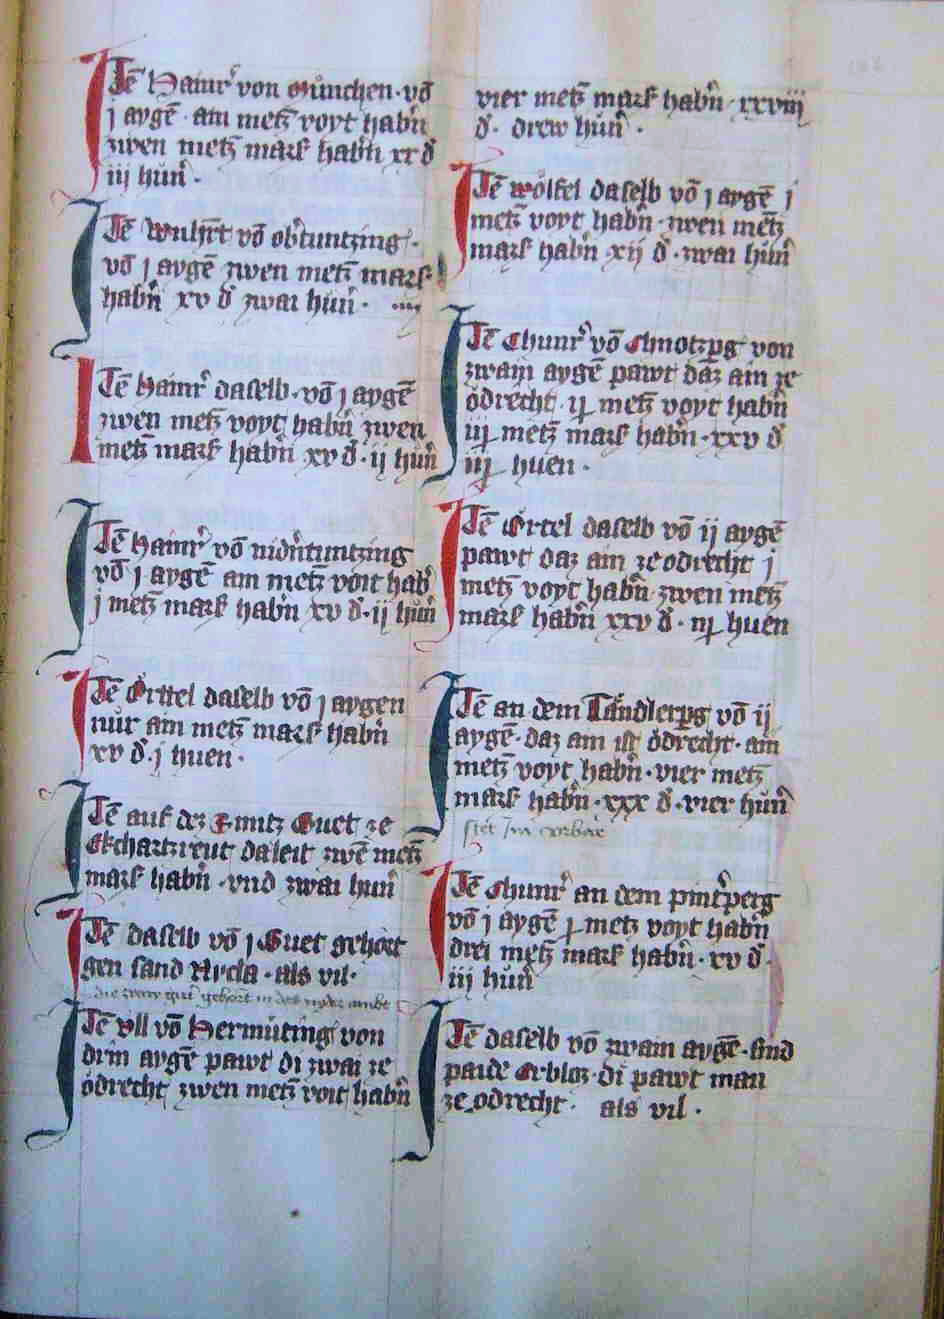 Itē Hainr̄ von Munchen · vō
j aygē · ain metz̄ voyt habn̄
zwen metz̄ mark habn̄ xx d̄
iij hun̄ ·
Itē Wulfīt vō ob̄tuntzing ·
vō j aygē zwen metz̄ mark
habn̄ xv d̄ zwai hun̄ ·
Itē Hainr̄ daselb · vō j aygē
zwen metz̄ voyt habn̄ zwen
metz̄ mark habn̄ xv d̄ · ij hun̄
Itē Hainr̄ vō nidn̄tuntzing
vō j aygē ain metz̄ voit hab̄
j metz̄ mark habn̄ xv d̄ · ij hun̄
Itē Örttel daselb vō j aygen
nůr ain metz̄ mark habn̄
xv d̄ · j huen ·
Itē auf der Guet ze
Ekchartzreut da leit zwē metz̄
mark habn̄ · vnd zwai hun̄
Itē daselb vō j Guet gehört
gen sand Nycla · als vil ·
die zway gut gehort in das ambt
Itē Ull vō Hermůting von
drin aygē pawt di zwai ze
ödrecht zwen metz̄ voit habn̄
vier metz̄ mark habn̄ · xxviij
d̄ · drew hůn̄ ·
Itē Wölfel daselb vō j aygē j
metz̄ voyt habn̄ · zwen metz̄
mark habn̄ · xij d̄ · zwai hůn̄
Itē Chunr̄ vō von
zwain aygē pawt daz ain ze
ödrecht · metz̄ voyt habn̄
metz̄ mark habn̄ · xxv d̄
huen ·
Itē Örtel daselb vō ij aygē
pawt daz ain ze odrecht j
metz̄ voyt habn̄ · zwen metz̄
mark habn̄ xxv d̄ · huen
Itē an dem Tändlerꝑg vō ij
aygē · daz ain ist ödrecht · ain
metz̄ voyt habn̄ · vier metz̄
mark habn̄ · xxx d̄ · vier hůn̄
stet Im
Itē Chunr̄ an dem pint̄perg
vō j aygē metz voyt habn̄
drei metz̄ mark habn̄ · xv d̄ ·
iij hůn̄
Itē daselb vō zwain aygē · sind
paide Erbloz · di pawt man
ze odrecht · als vil ·